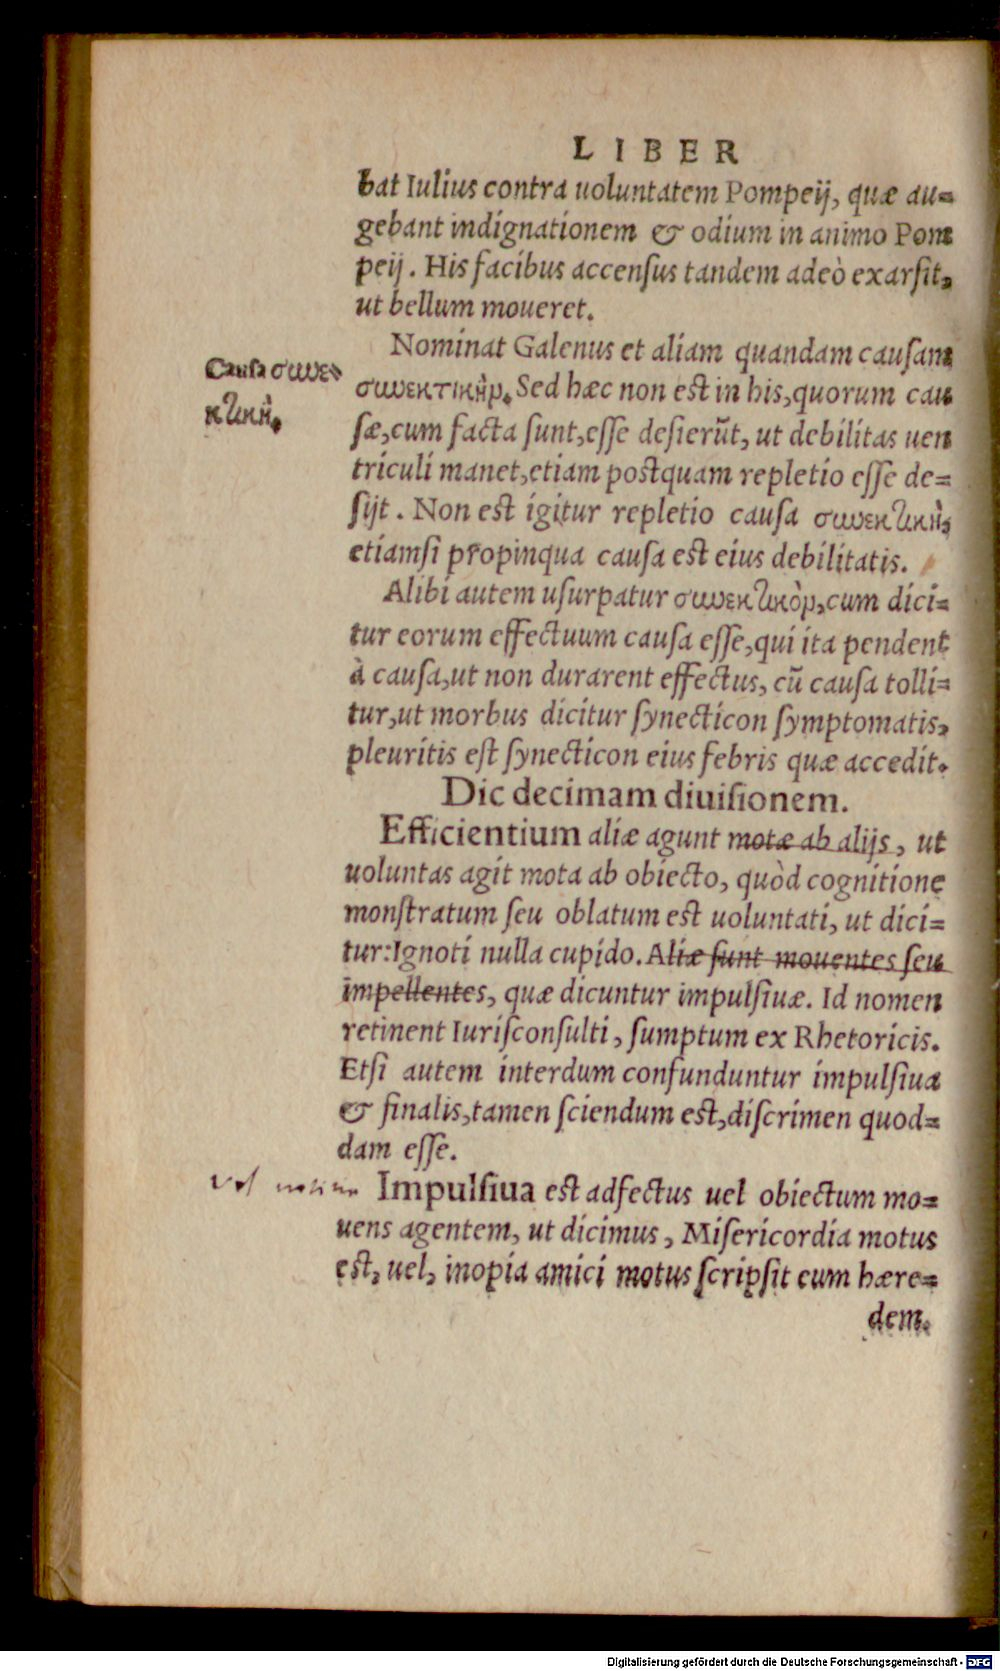 LIBER
bat Iulius contra uoluntatem Pompeij, quæ au=
gebant indignationem & odium in animo Pom
peij. His facibus accensus tandem adeò exarsit,
ut bellum moueret.
Nominat Galenus et aliam quandam causam
Causa συνε-
κτικὴ.
συνεκτικὴν. Sed hæc non est in his, quorum cau
sæ, cum facta sunt, esse desierūt, ut debilitas uen
triculi manet, etiam postquam repletio esse de=
sijt. Non est igitur repletio causa συνεκτικὴ,
etiamsi propinqua causa est eius debilitatis.
Alibi autem usurpatur συνεκτικὸν, cum dici=
tur eorum effectuum causa esse, qui ita pendent
à causa, ut non durarent effectus, cū causa tolli=
tur, ut morbus dicitur synecticon symptomatis,
pleuritis est synecticon eius febris quæ accedit.
Dic decimam diuisionem.
Efficientium aliæ agunt motæ ab alijs, ut
uoluntas agit mota ab obiecto, quòd cognitione
monstratum seu oblatum est uoluntati, ut dici=
tur: Ignoti nulla cupido. Aliæ sunt mouentes seu
impellentes, quæ dicuntur impulsiuæ. Id nomen
retinent Iurisconsulti, sumptum ex Rhetoricis.
Etsi autem interdum confunduntur impulsiua
& finalis, tamen sciendum est, discrimen quod=
dam esse.
vel
Impulsiua est adfectus uel obiectum mo=
uens agentem, ut dicimus, Misericordia motus
est, uel, inopia amici motus scripsit eum hære=
dem.
Digitalisierung gefördert durch die Deutsche Forschungsgemeinschaft - DFG